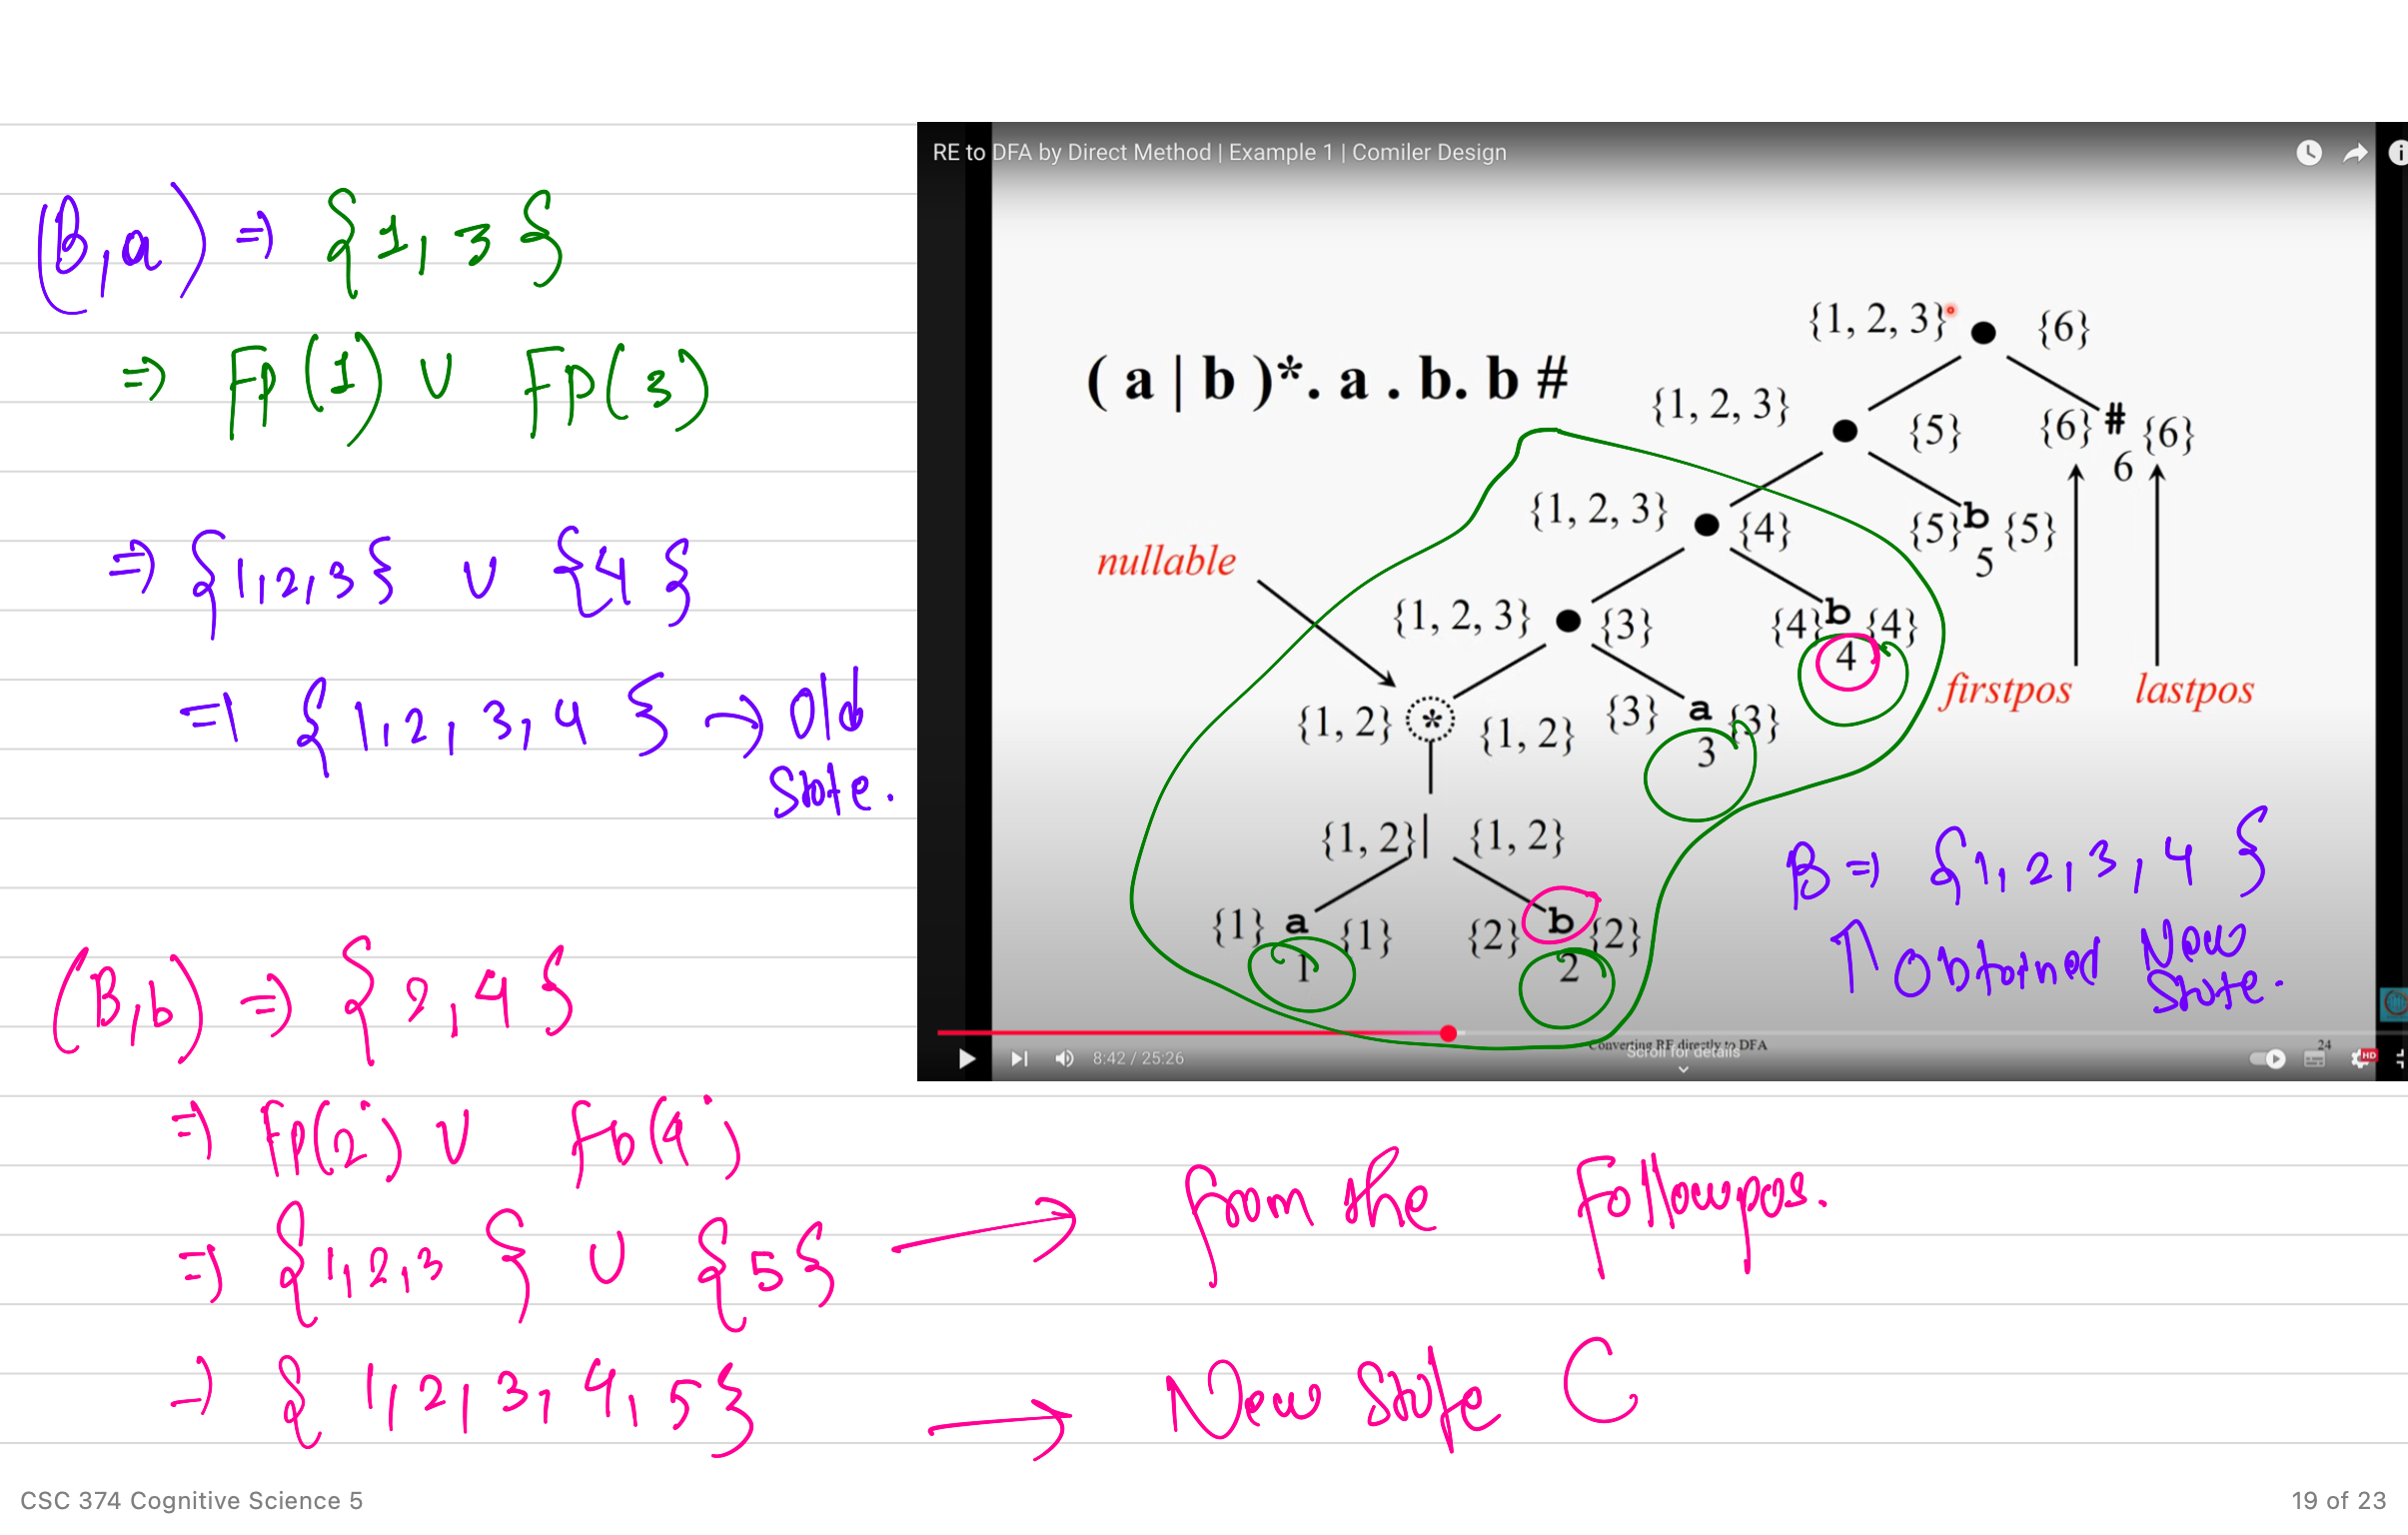 (B,a) => {1,3}
=> Fp(1) ∪ Fp(3)
=> {1,2,3} ∪ {4}
=> {1,2,3,4} → Old
State.
(B,b) => {2,4}
=> Fp(2) ∪ fp(4)
=> {1,2,3} ∪ {5} → from the Followpos.
→ {1,2,3,4,5} → New State C
RE to DFA by Direct Method | Example 1 | Comiler Design
{1, 2, 3} {6}
( a | b )*. a . b. b #
{1, 2, 3} {5} {6} # {6}
6
{1, 2, 3} {4} {5} b {5}
5
nullable
{1, 2, 3} {3} {4} b {4}
4
firstpos lastpos
{1, 2} * {1, 2} {3} a {3}
3
{1, 2} | {1, 2}
{1} a {1} {2} b {2}
1 2
B => {1,2,3,4}
↑ Obtained New
State.
Converting RE directly to DFA 24
Scroll for details
8:42 / 25:26
HD
CSC 374 Cognitive Science 5
19 of 23